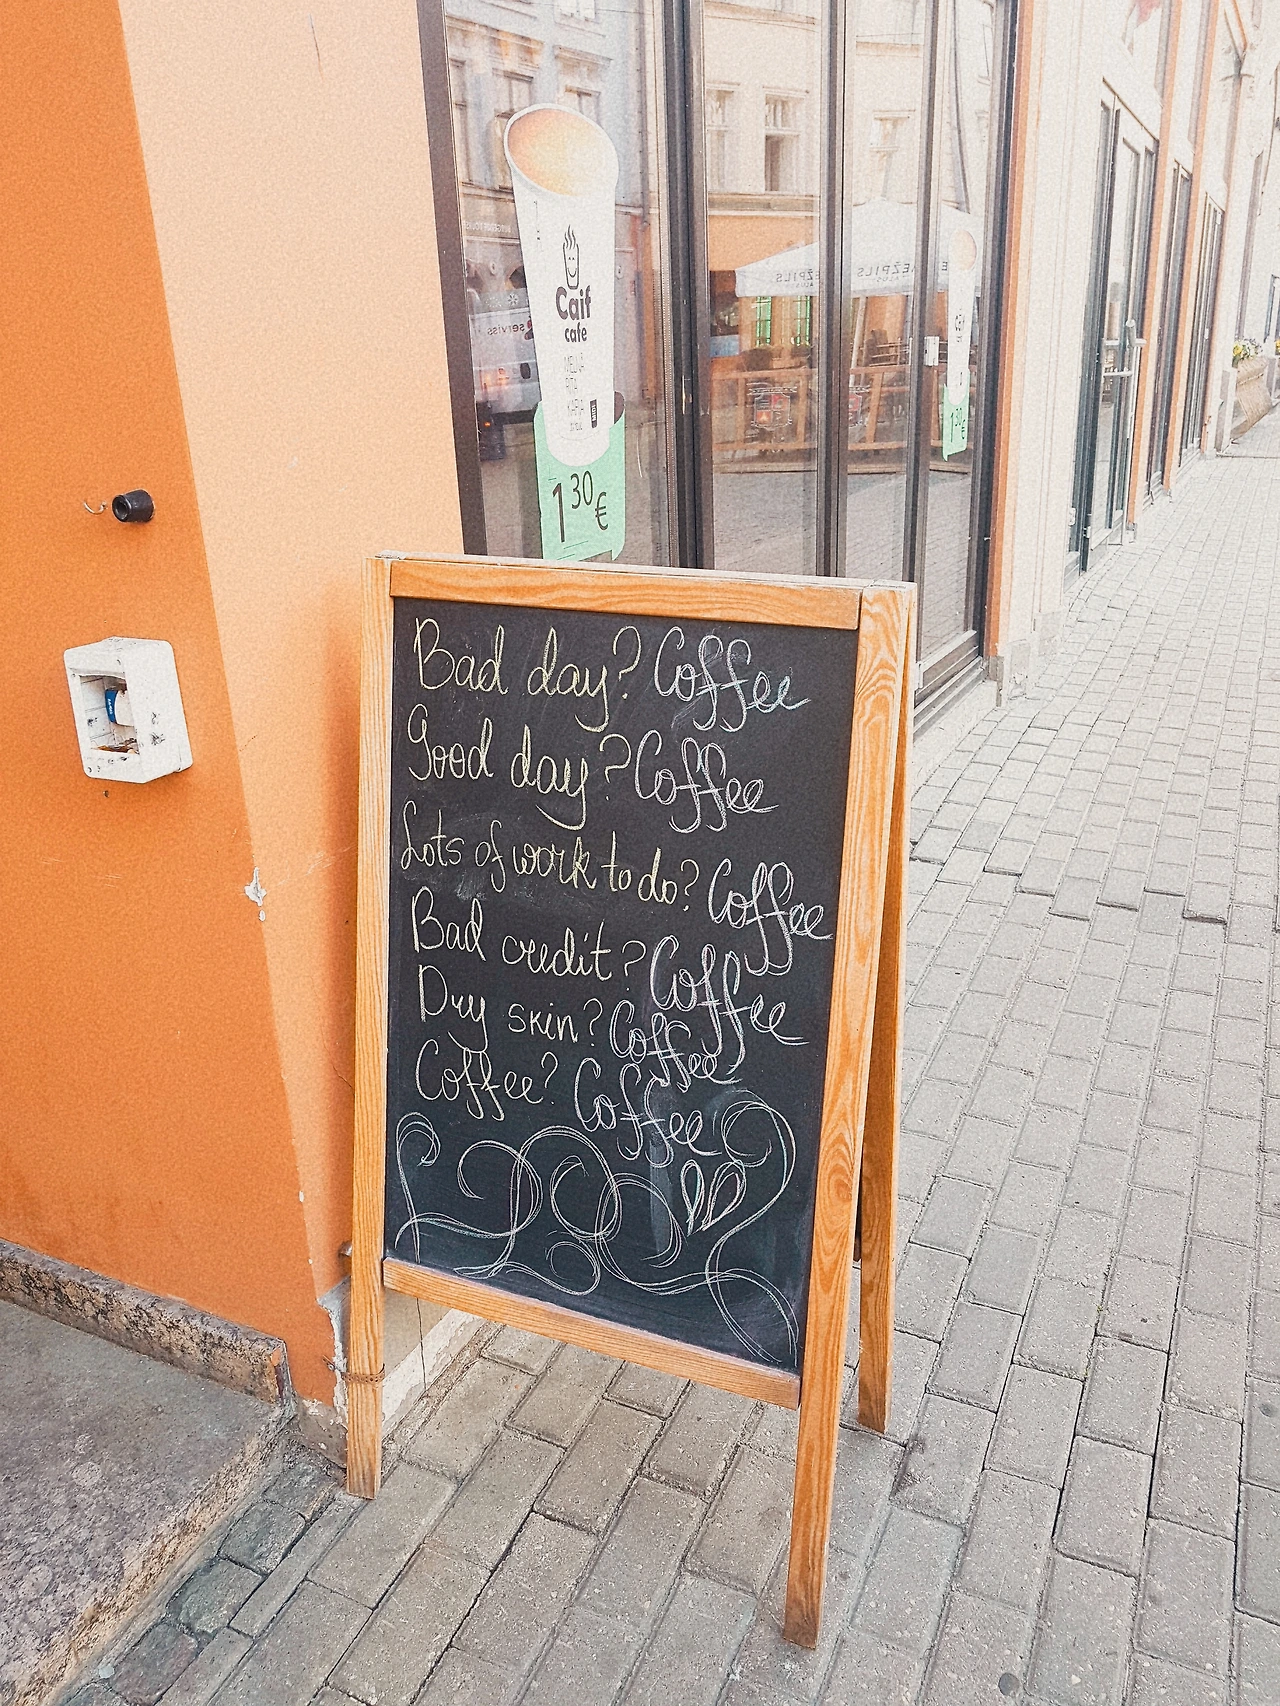 Caif
cafe
MELNĀ
1 30 €
Bad day? Coffee
Good day? Coffee
Lots of work to do? Coffee
Bad credit? Coffee
Dry skin? Coffee
Coffee? Coffee
MEŽPILS
MEŽPILS
serviss
1 30 €